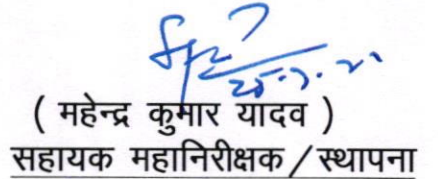 ( महेन्द्र कुमार यादव )
सहायक महानिरीक्षक/स्थापना